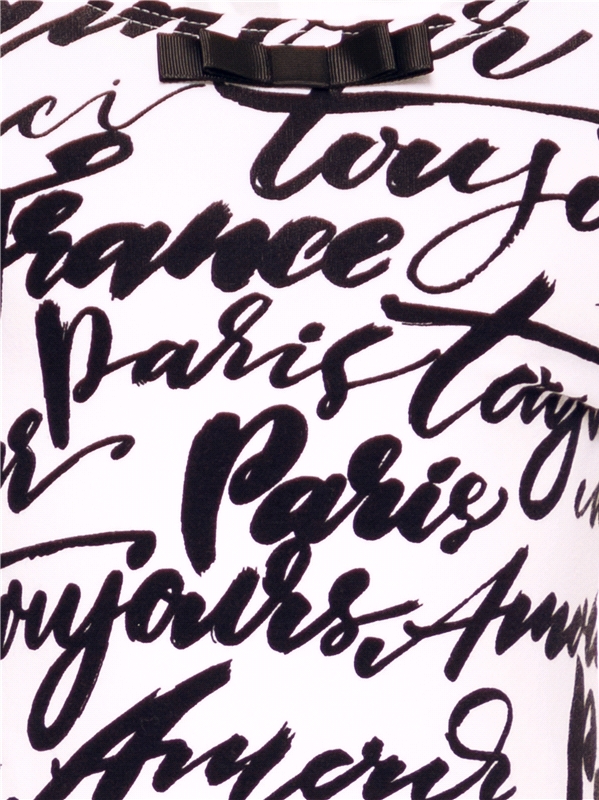 ci Toujo
France
Paris
Paris
oujours Amou
Amour